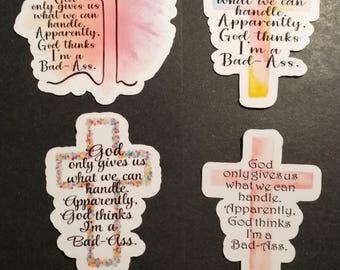 God
only gives us
what we can
handle.
Apparently,
God thinks
I'm a
Bad-Ass.
what we can
handle.
Apparently,
God thinks
I'm a
Bad-Ass.
God
only gives us
what we can
handle.
Apparently,
God thinks
I'm a
Bad-Ass.
God
only gives us
what we can
handle.
Apparently,
God thinks
I'm a
Bad-Ass.